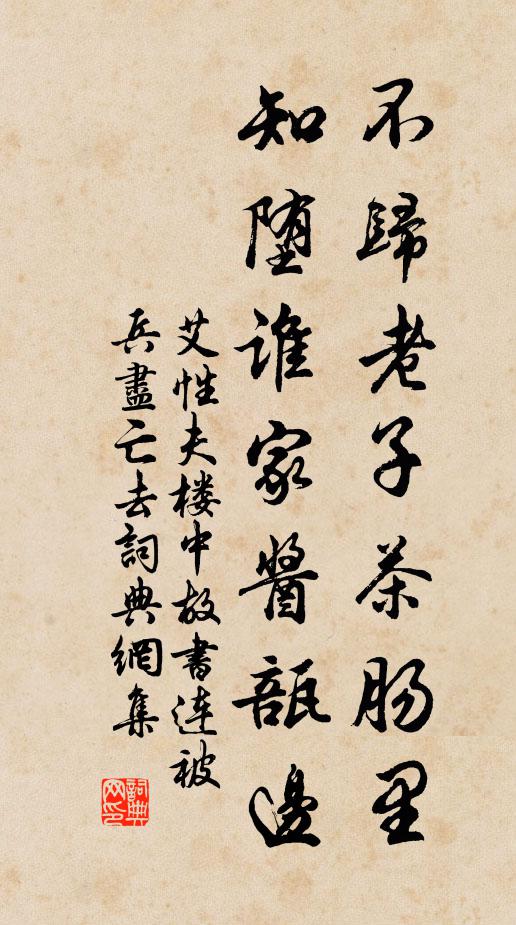 不歸老子茶肠里
知堕誰家醬瓿邊
艾性夫楼中故書连被
兵盡亡去詞典網集
詞典网印